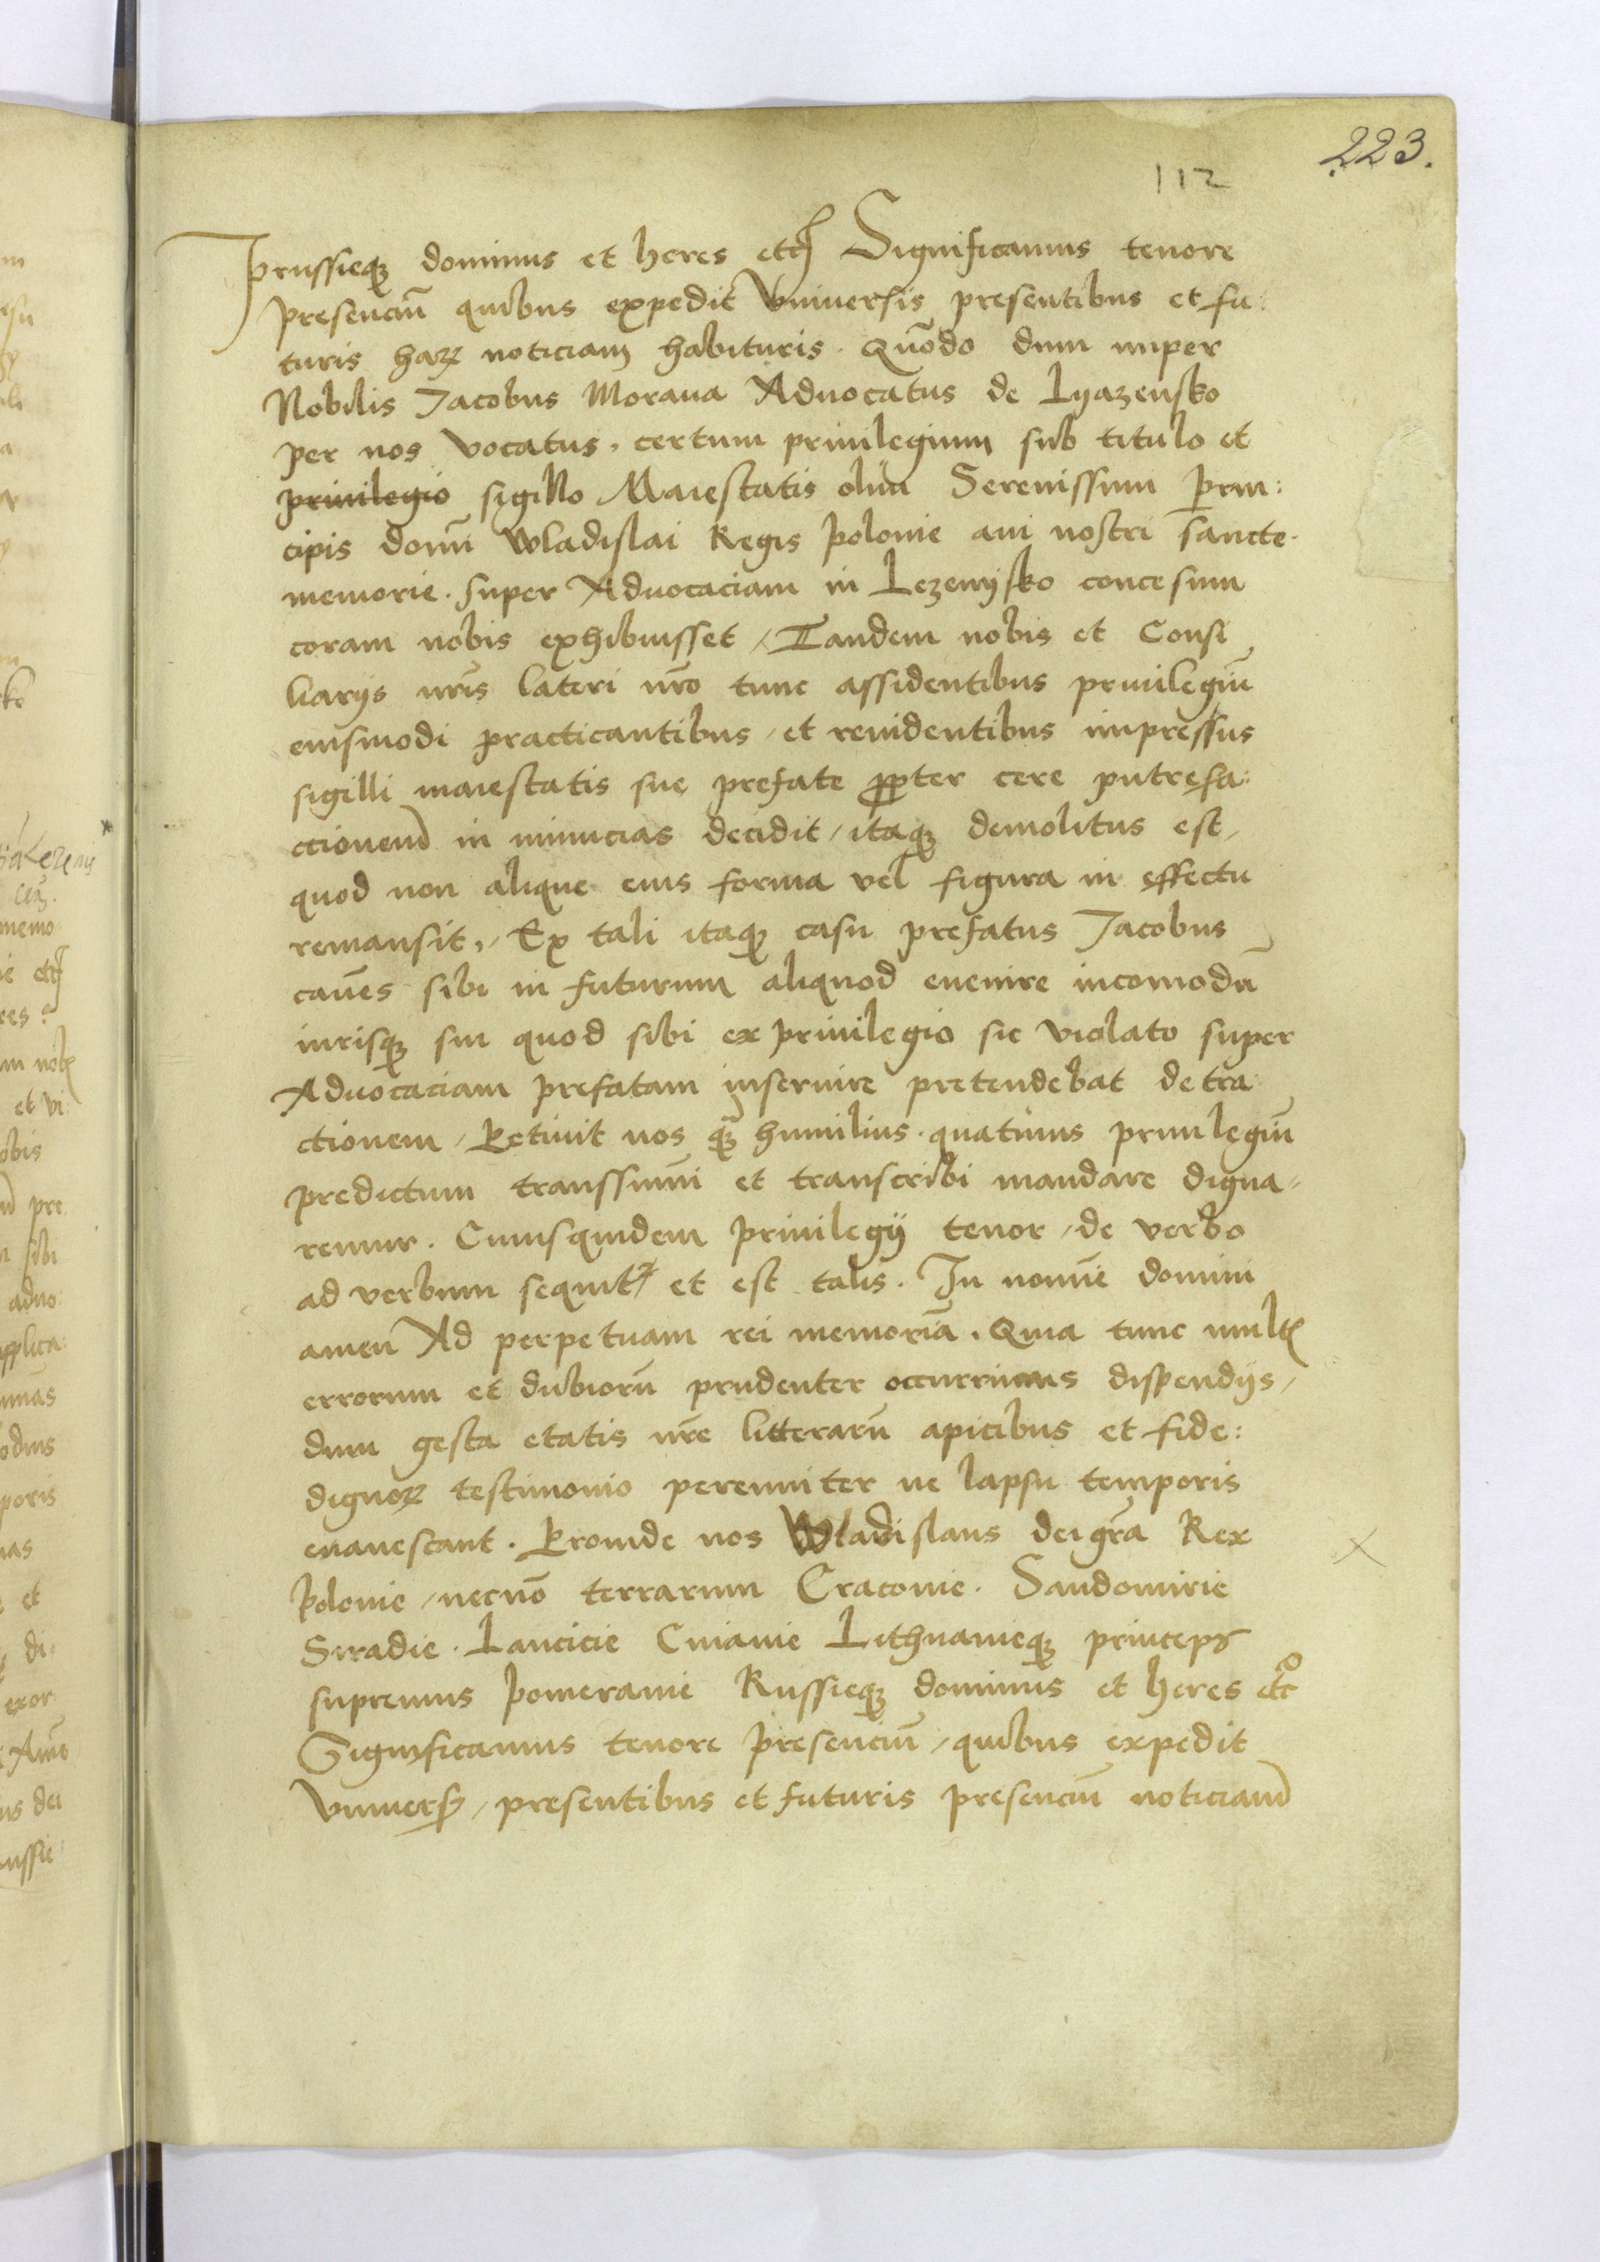 223.
112
Prussieq₃ dominus et heres etc Significamus tenore
presenciū quibus expedit Vniuersis presentibus et fu:
turis haꝝ noticiam habituris. Quōdo dum nuper
Nobilis Jacobus Moraua Aduocatus de Lyazensko
per nos vocatus, certum priuilegium sub titulo et
priuilegio sigillo Maiestatis olim Serenissimi Prin:
cipis domī Wladislai Regis Polonie aui nostri sancte
memorie. super Aduocaciam in Lezenysko concesum
coram nobis exhibuisset / Tandem nobis et Consi
liarijs nrīs lateri nrō tunc assidentibus priuilegiū
eiusmodi practicantibus / et reuidentibus impressus
sigilli maiestatis sue prefate ꝓpter cere putrefa:
ctionem in minucias decidit / itaq₃ demolitus est /
quod non alique eius forma vel figura in effectu
remansit, / Ex tali itaq₃ casu prefatus Jacobus
cauēs sibi in futurum aliquod euenire incomodū
iurisq₃ sui quod sibi ex priuilegio sic violato super
Aduocaciam prefatam inseruire pretendebat detra
ctionem / Petiuit nos q₃ humilius. quatinus priuilegiū
predictum transsumi et transcribi mandare digna-
remur. Cuiusquidem priuilegij tenor / de verbo
ad verbum sequit² et est talis. In nomīe domini
amen Ad perpetuam rei memoriā. Quia tunc mult
errorum et dubiorū prudenter occurrimus dispendijs /
dum gesta etatis nrē litterarū apicibus et fide:
dignoꝝ testimonio perenniter ne lapsu temporis
euanescant. Proinde nos Wladislaus dei grā Rex
Polonie / necnō terrarum Cracouie. Sandomirie
Siradie. Lancicie Cuiauie Lithuanieq₃ princeps
supremus Pomeranie Russieq₃ dominus et heres etc
Significamus tenore presenciū / quibus expedit
Vniuers / presentibus et futuris presenciū noticiam